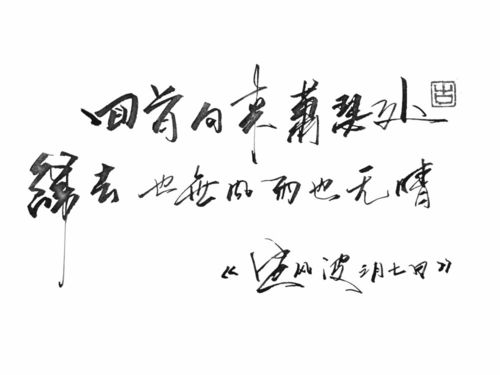 回首向来蕭瑟处
歸去也無风雨也无晴
《定风波三月七日》